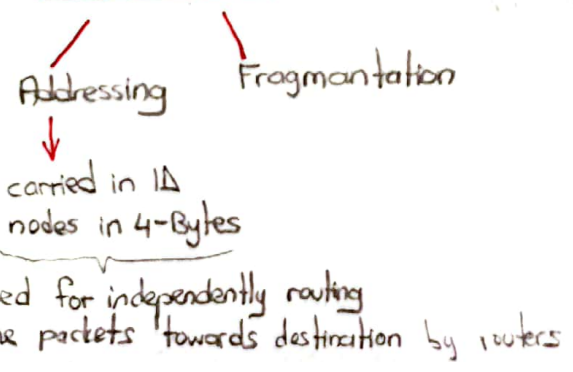 Addressing
Fragmantation
carried in ID
nodes in 4-Bytes
ed for independently routing
packets towards destination by routers